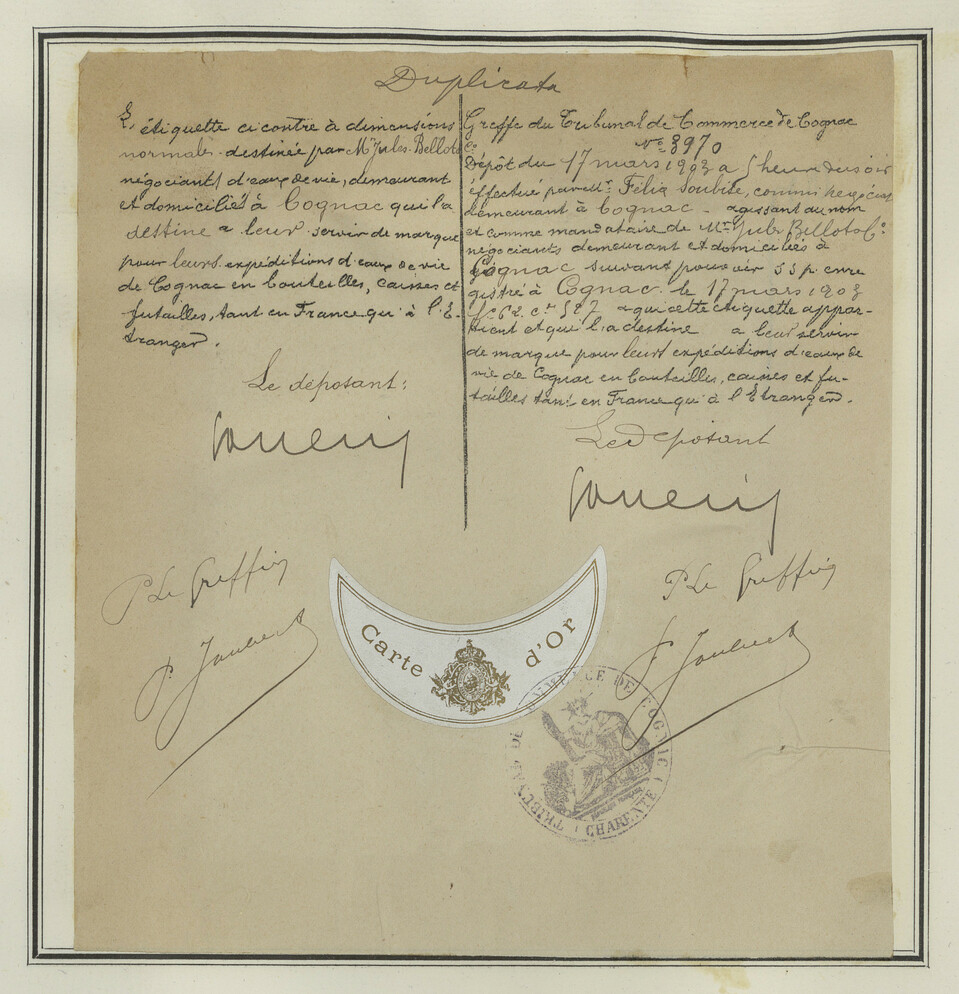 Duplicata
L'étiquette ci contre à dimensions
normales destinée par Mrs Jules Bellot &
négociants d'eaux de vie, demeurant
et domiciliés à Cognac qui la
destine a leur servir de marque
pour leurs expéditions d'eaux de vie
de Cognac en bouteilles, caisses et
futailles, tant en France qu'à l'É-
tranger.
Le déposant:
P Le Greffier
P. Joubert
Greffe du Tribunal de Commerce de Cognac
No 8970
Dépôt du 17 mars 1903 a 5 heure du soir
effectué par Mr. Félix Soubite, commis négociant
demeurant à Cognac - agissant au nom
et comme mandataire de Mrs Jules Bellot & Co
négociants demeurant et domiciliés à
Cognac suivant pouvoir s s p. enre
gistré à Cognac le 17 mars 1903
fo 62 co 527 a qui cette étiquette appar-
tient et qui l'a destine a leur servir
de marque pour leurs expéditions d'eaux de
vie de Cognac en bouteilles, caisses et fu-
tailles tant en France qu'à l'Etranger.
Le déposant
P Le Greffier
P. Joubert
Carte d'Or
TRIBUNAL DE COMMERCE DE COGNAC
CHARENTE